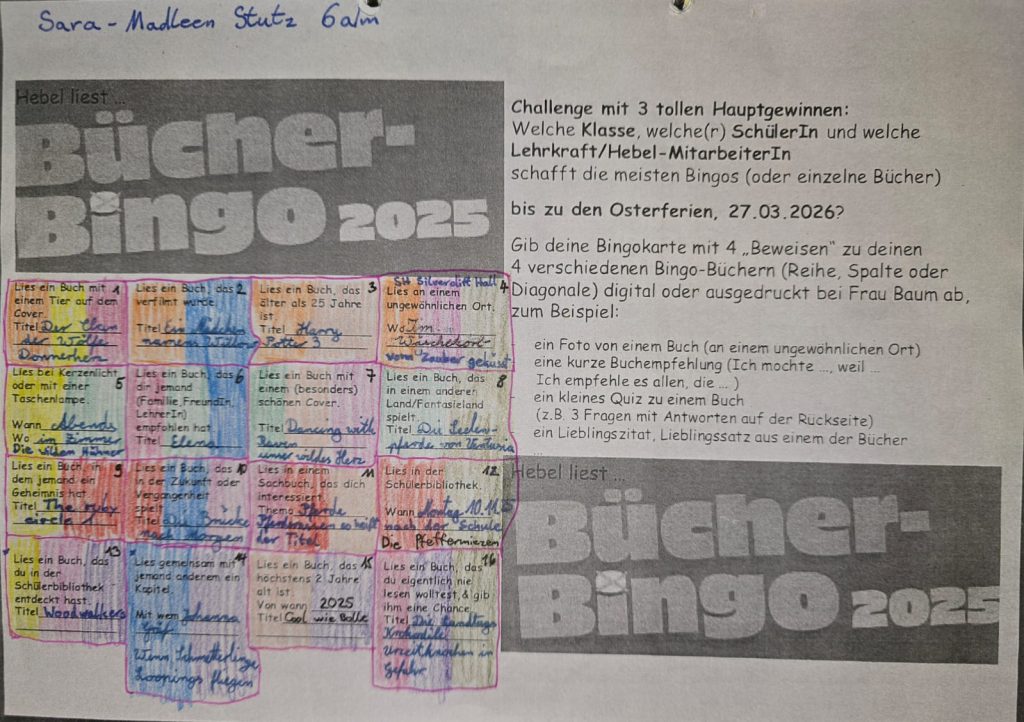 Sara-Madleen Stutz 6a/m
Hebel liest ...
Bücher-
Bingo 2025
Challenge mit 3 tollen Hauptgewinnen:
Welche Klasse, welche(r) SchülerIn und welche
Lehrkraft/Hebel-MitarbeiterIn
schafft die meisten Bingos (oder einzelne Bücher)
bis zu den Osterferien, 27.03.2026?
Gib deine Bingokarte mit 4 „Beweisen“ zu deinen
4 verschiedenen Bingo-Büchern (Reihe, Spalte oder
Diagonale) digital oder ausgedruckt bei Frau Baum ab,
zum Beispiel:
ein Foto von einem Buch (an einem ungewöhnlichen Ort)
eine kurze Buchempfehlung (Ich mochte ..., weil ...
Ich empfehle es allen, die ... )
ein kleines Quiz zu einem Buch
(z.B. 3 Fragen mit Antworten auf der Rückseite)
ein Lieblingszitat, Lieblingssatz aus einem der Bücher
...
Lies ein Buch mit 1
einem Tier auf dem
Cover.
Titel Der Clan
der Wölfe
Donnerherz
Lies ein Buch, das 2
verfilmt wurde.
Titel Ein Mädchen
namens Willow
Lies ein Buch, das 3
älter als 25 Jahre
ist.
Titel Harry
Potter 3
SH Silvercliff Hall 4
Lies an einem
ungewöhnlichen Ort.
Wo Im
Wäschekorb
vom Zauber geküsst
Lies bei Kerzenlicht
oder mit einer 5
Taschenlampe.
Wann Abends
Wo im Zimmer
Die wilden Hühner
Lies ein Buch, das 6
dir jemand
(Familie, FreundIn,
LehrerIn)
empfohlen hat.
Titel Elena
Lies ein Buch mit 7
einem (besonders)
schönen Cover.
Titel Dancing with
Raven
unser wildes Herz
Lies ein Buch, das 8
in einem anderen
Land/Fantasieland
spielt.
Titel Die Seelen-
pferde von Ventusia
Lies ein Buch, in 9
dem jemand ein
Geheimnis hat.
Titel The ruby
circle 1
Lies ein Buch, das 10
in der Zukunft oder
Vergangenheit
spielt.
Titel Die Brücke
nach morgen
Lies in einem 11
Sachbuch, das dich
interessiert.
Thema Pferde
Pferderassen so heißt
der Titel
Lies in der 12
Schülerbibliothek.
Wann Montag 10.11.25
nach der Schule
Die Pfeffermiezen
13
Lies ein Buch, das
du in der
Schülerbibliothek
entdeckt hast.
Titel Woodwalkers
Lies gemeinsam mit 14
jemand anderem ein
Kapitel.
Mit wem Johanna
Graf
Wenn Schmetterlinge
Loopings fliegen
Lies ein Buch, das 15
höchstens 2 Jahre
alt ist.
Von wann 2025
Titel Cool wie Bolle
16
Lies ein Buch, das
du eigentlich nie
lesen wolltest, & gib
ihm eine Chance.
Titel Die Landtags
Krokodile
Urzeitknochen in
Gefahr
Hebel liest ...
Bücher-
Bingo 2025